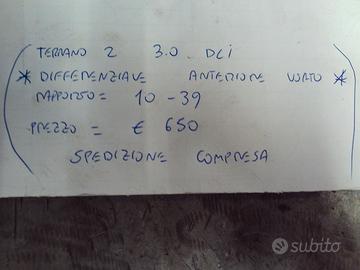 TERRANO 2 3.0 DCi
* DIFFERENZIALE ANTERIORE VUOTO *
RAPPORTO = 10 - 39
PREZZO = € 650
SPEDIZIONE COMPRESA
subito